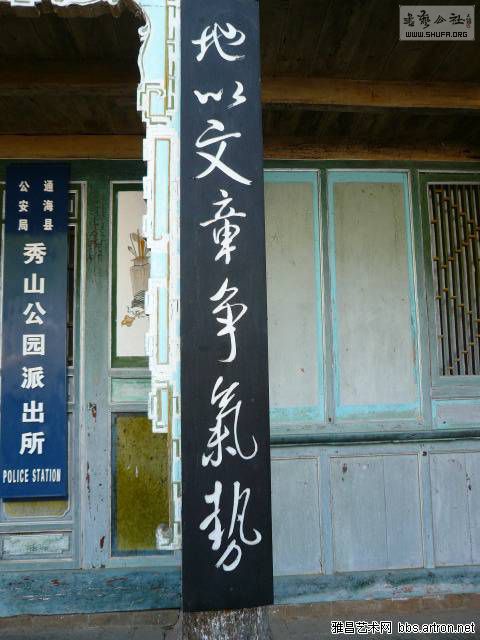 地以文章争气勢
通海县
公安局
秀山公园派出所
POLICE STATION
書藝公社
WWW.SHUFA.ORG
雅昌艺术网 bbs.artron.net